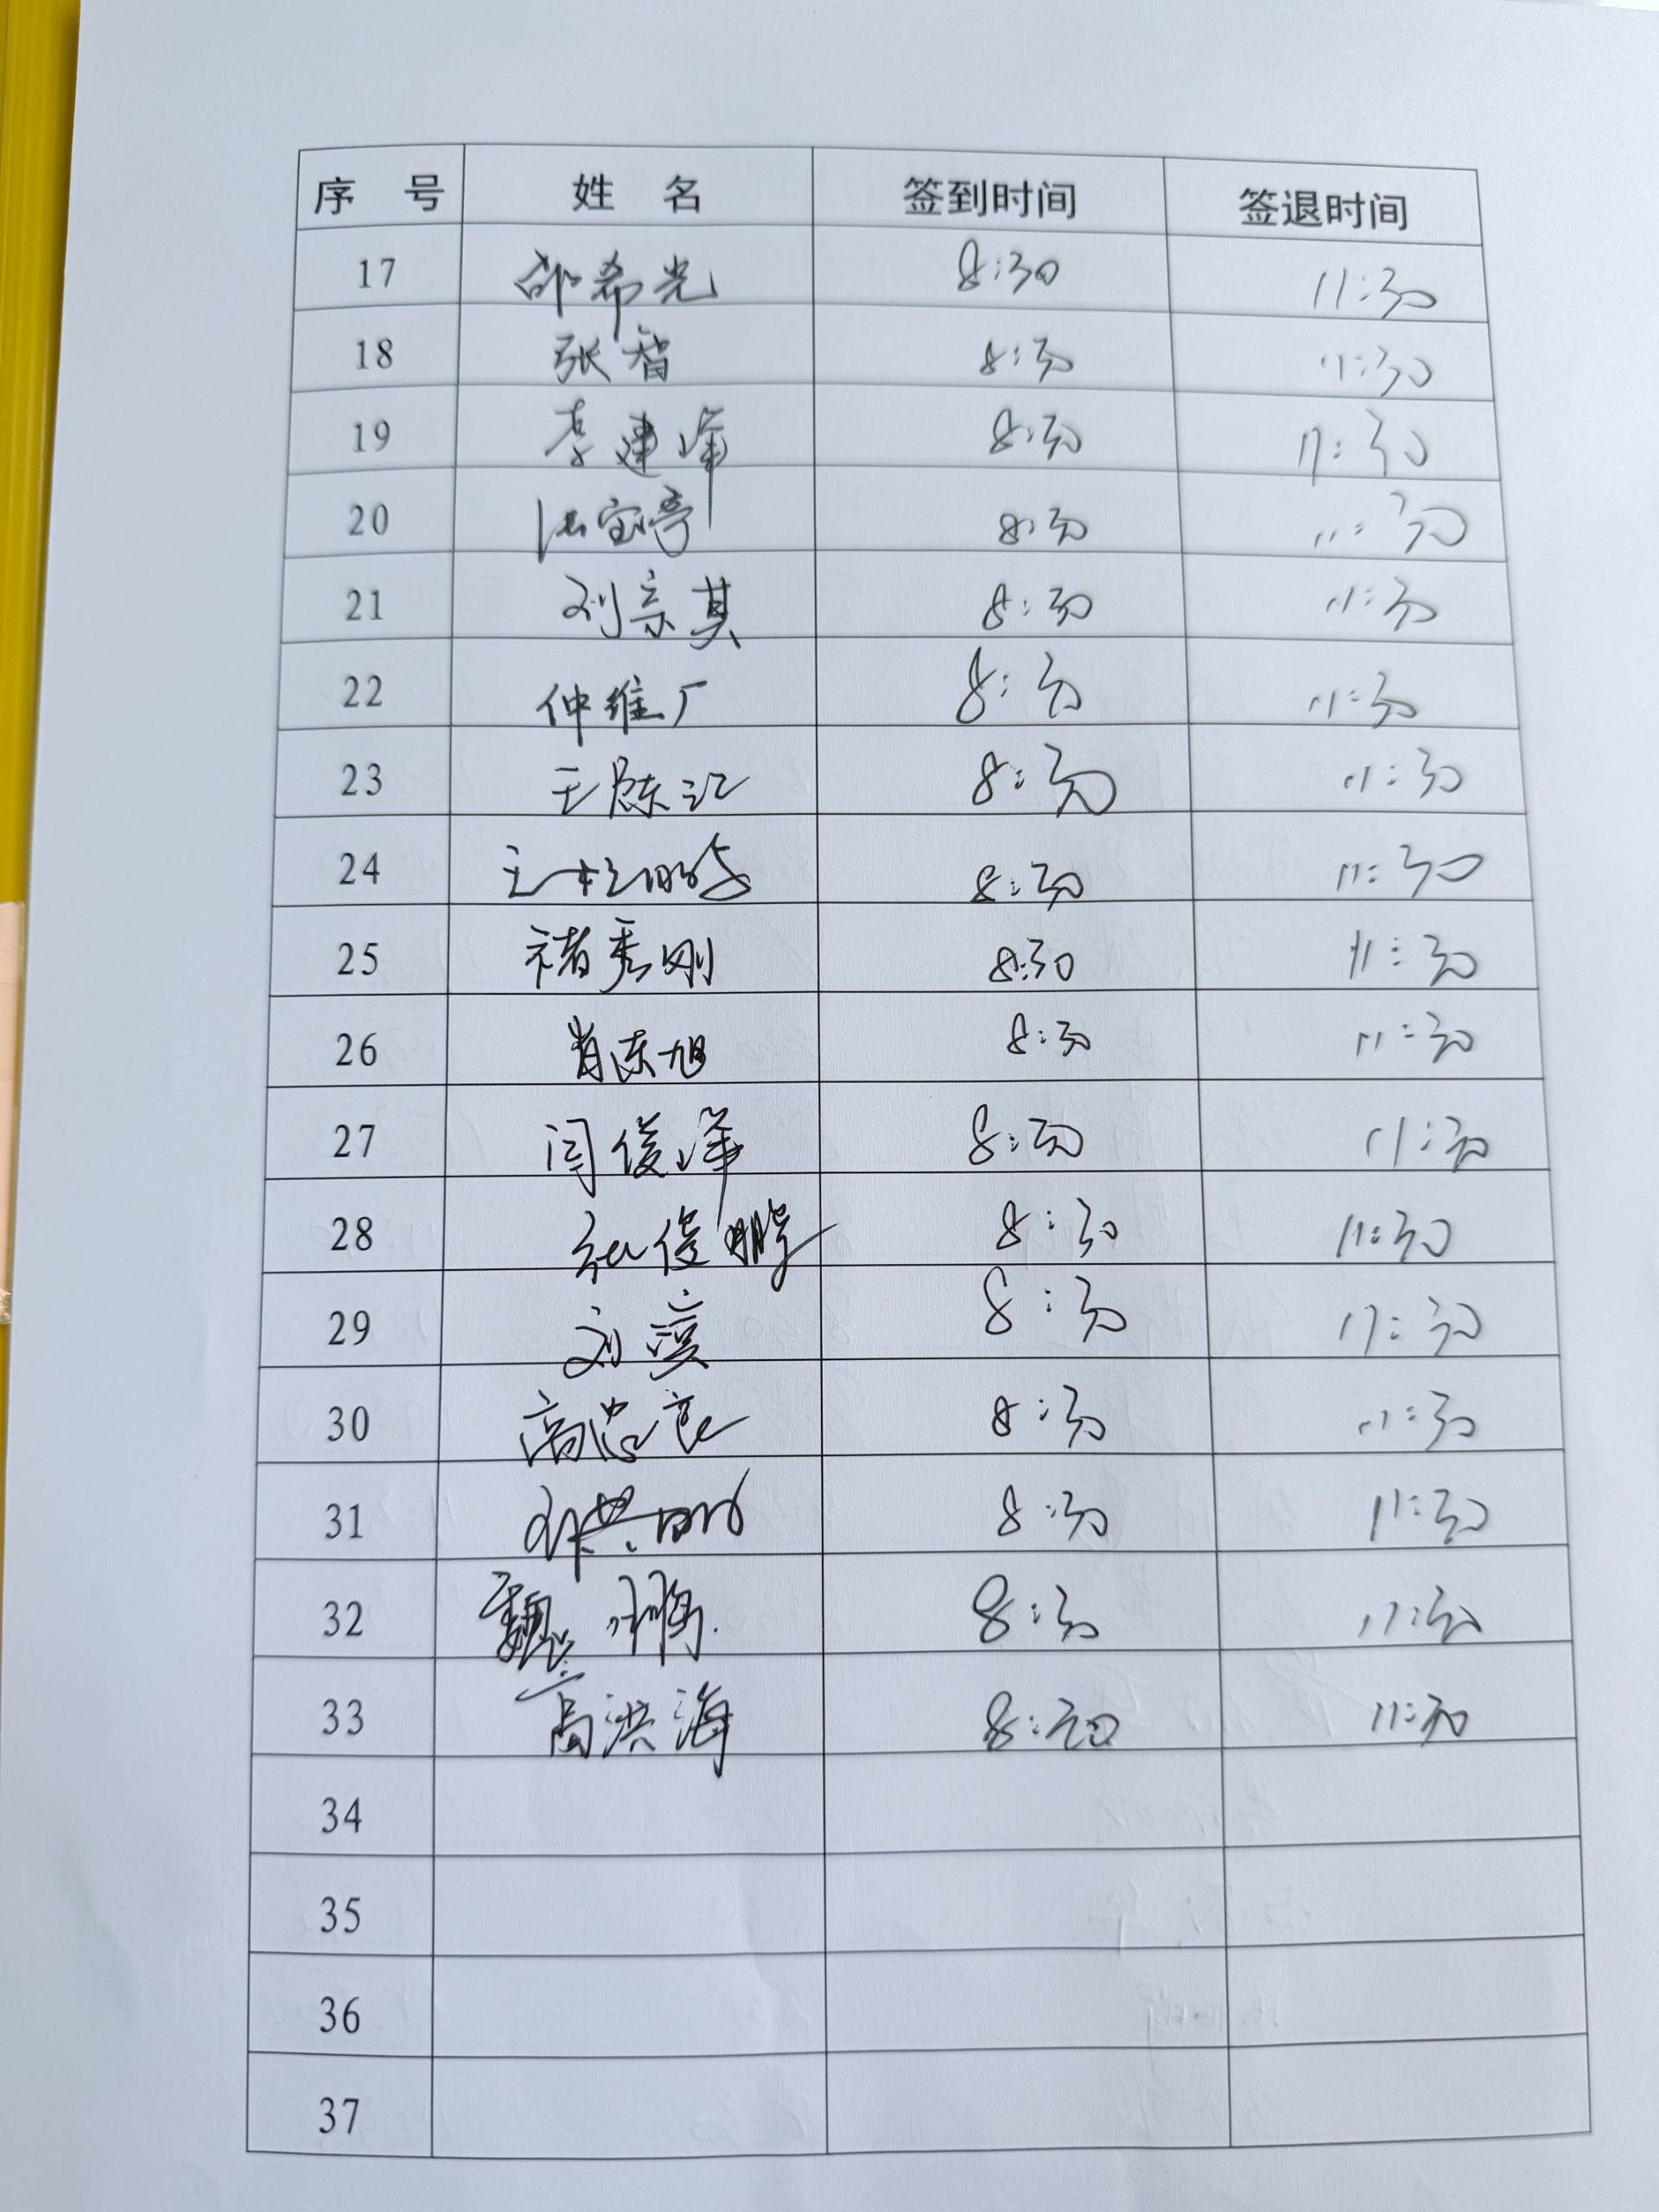 序 号 姓 名 签到时间 签退时间
17 邵希光 8:30 11:30
18 张智 8:30 11:30
19 李建峰 8:30 11:30
20 8:30 11:30
21 刘宗其 8:30 11:30
22 仲维广 8:30 11:30
23 王 江 8:30 11:30
24 王 8:30 11:30
25 褚秀刚 8:30 11:30
26 肖陈旭 8:30 11:30
27 闫俊峰 8:30 11:30
28 张俊鹏 8:30 11:30
29 刘滨 8:30 11:30
30 高忠良 8:30 11:30
31 8:30 11:30
32 魏 鹏 8:30 11:30
33 高洪海 8:20 11:30
34
35
36
37